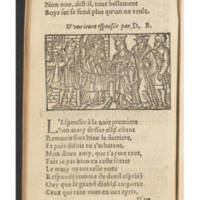 Non non, dist il, tout bellement
Boys sec se fend plus qu'on ne veult.
D'vne ieune espousée par, D, B.
L'Espousée à la nuit premiere
Son mary dessus elle estant
Remuoit fort bien le derriere,
Et puis disoit en s'esbatant,
Mon doux amy, que i'ayme tant,
Fais ie pas bien en ceste sorte?
Le mary oyant telle note
Respond (comme de dueil espris)
Ouy que le grand diable emporte
Ceux qui tant vous en ont apris.